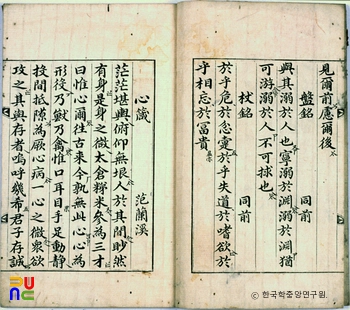 見爾前慮爾後
盤銘 同前
與其溺於人也寧溺於淵溺於淵猶
可游溺於人不可捄也
杖銘 同前
於乎危於忿懥於乎失道於嗜欲於
乎相忘於冨貴
心箴 范蘭溪
茫茫堪輿俯仰無垠人於其間眇然
有身是身之微太倉稊米叅為三才
曰惟心爾往古來今孰無此心心為
形役乃獸乃禽惟口耳目手足動靜
投間抵隙為厥心病一心之微衆欲
攻之其與存者嗚呼幾希君子存誠
© 한국학중앙연구원.